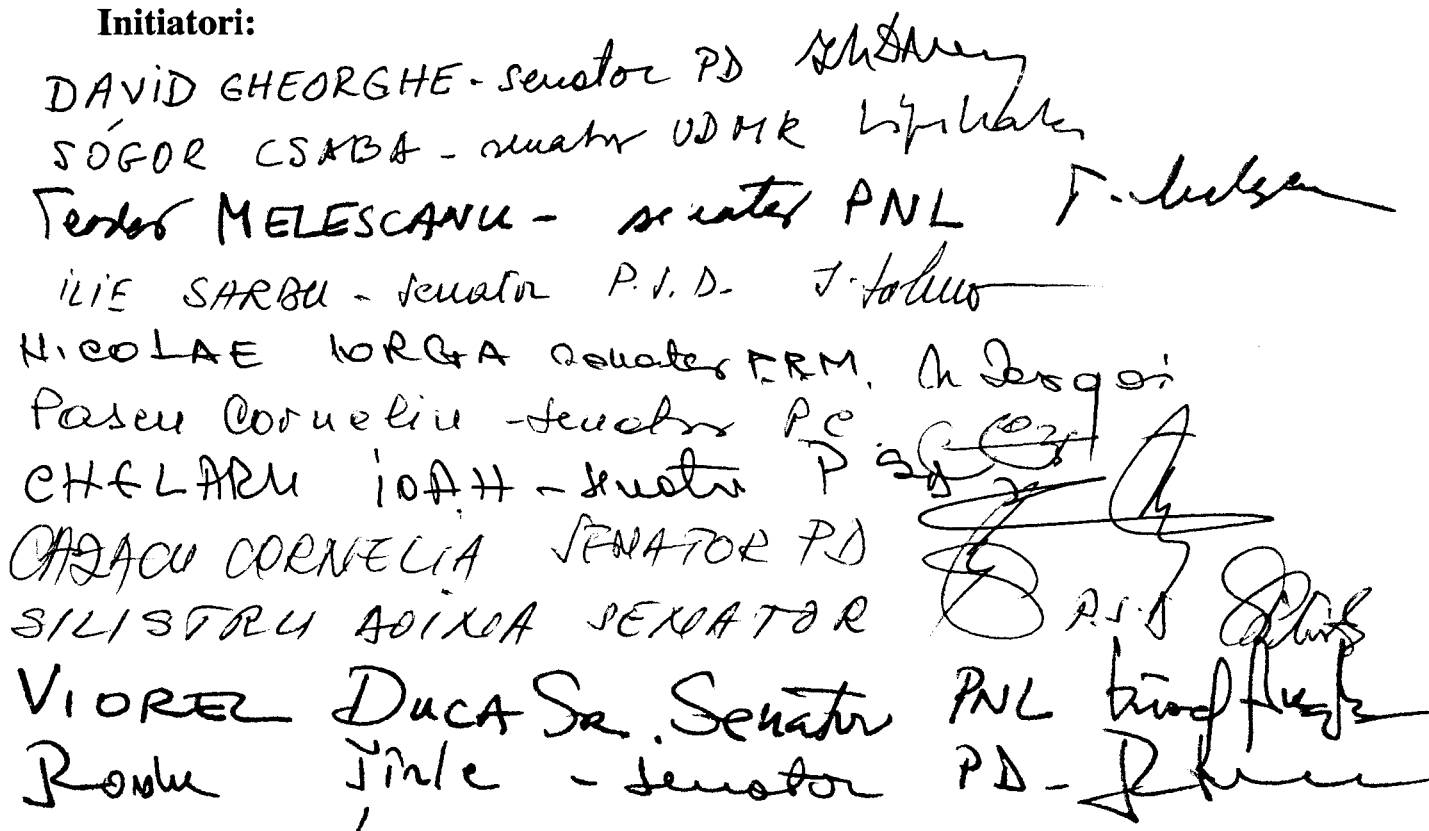 Initiatori:
DAVID GHEORGHE - senator PD
SÓGOR CSABA - senator UDMR
Teodor MELESCANU - senator PNL
ILIE SARBU - senator P.S.D.
NICOLAE IORGA senator P.R.M.
Pascu Corneliu - senator PC
CHELARU IOAN - senator PSD
CAZACU CORNELIA SENATOR PD
SILISTRU DOINA SENATOR P.S.D
VIOREL DUCA Sr. Senator PNL
Radu Țîrle - senator PD -